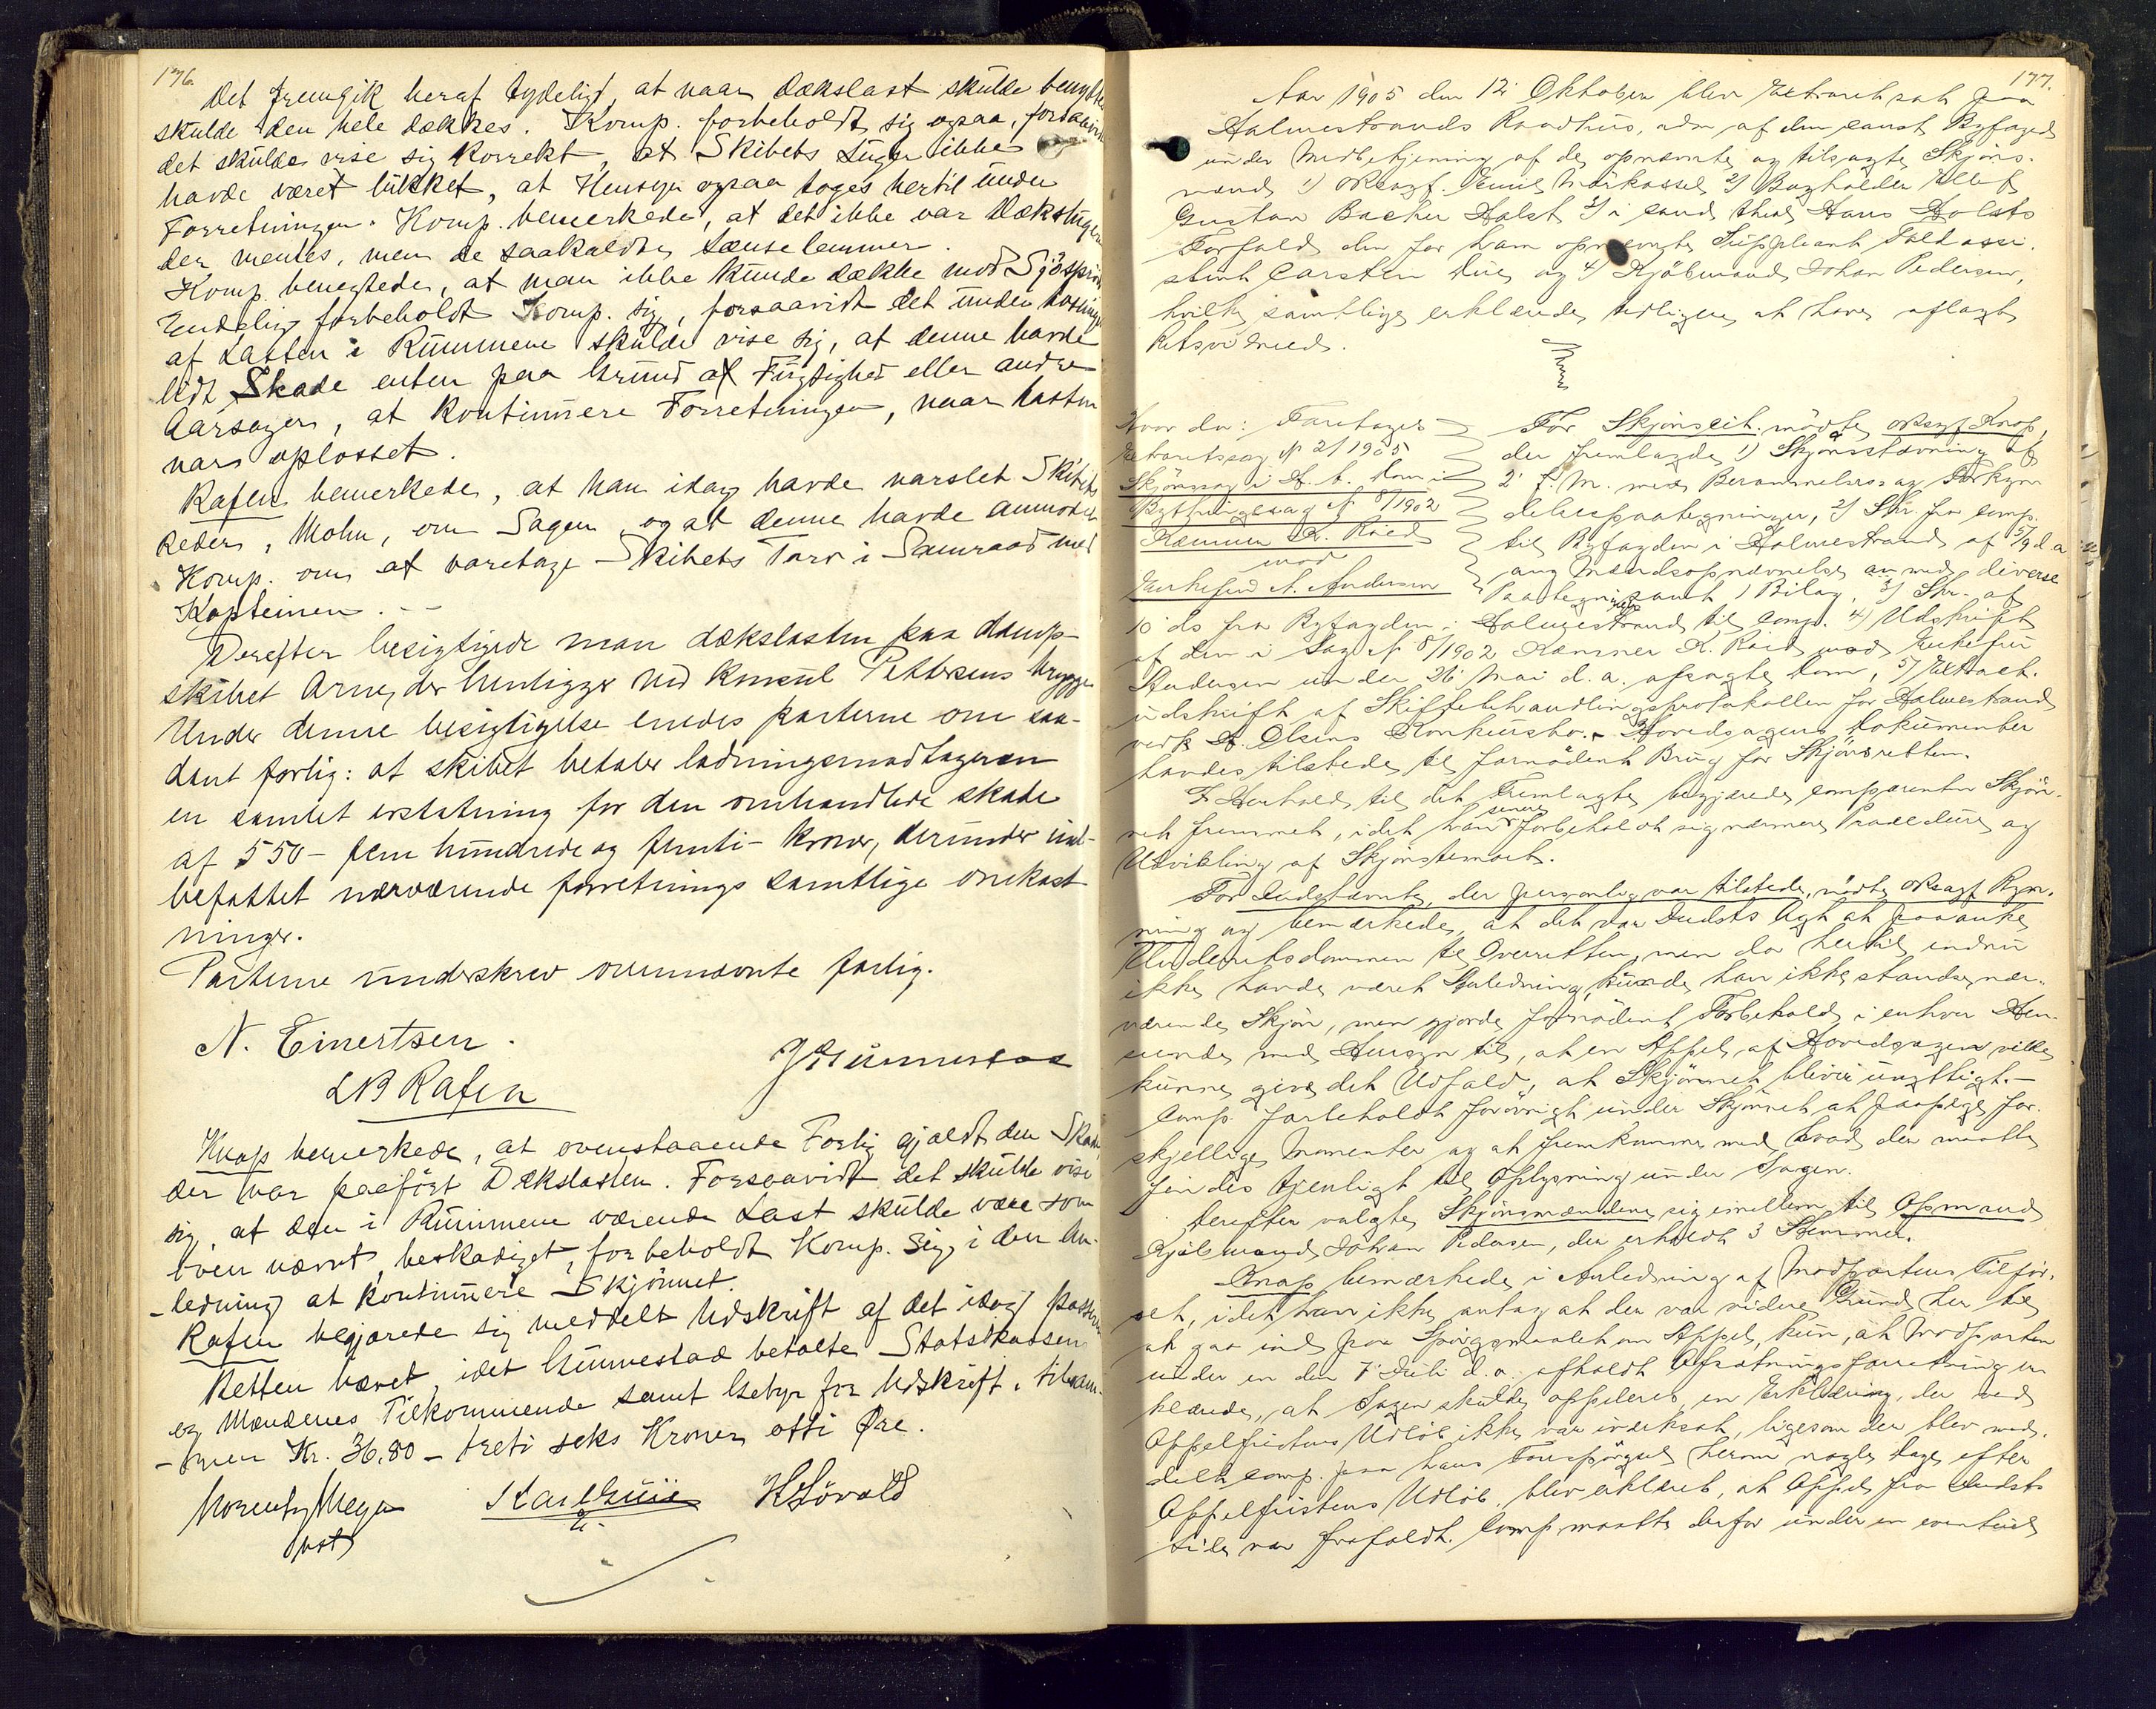 176.
Det fremgik heraf tydeligt, at naar Dækslast skulde benyttes
skulde den hele dækkes. Komp. forbeholdt sig ogsaa, forsaavidt
det skulde vise sig korrekt, at Skibets Luger ikke
havde været lukket, at Hensyn ogsaa toges hertil under
Forretningen. Komp. bemerkede, at det ikke var Dækslugen
der mentes, men de saakaldte Lænselemmer.
Komp. benegtede, at man ikke kunde dække mod Sjösprøit
Endelig forbeholdt Komp. sig, forsaavidt det under losningen
af Lasten i Rummene skulde vise sig, at denne havde
lidt Skade enten paa Grund af Fugtighed eller andre
Aarsager, at kontinuere Forretningen, naar Lasten
var oplosset.
Rafen bemerkede, at han idag havde varslet Skibets
Reder, Mohn, om Sagen, og at denne havde anmodet
Komp. om at varetage Skibets Tarv i Samraad med
Kapteinen. —
Derefter besigtigede man dækslasten paa damp-
skibet Arne, der henligger ved konsul Pettersens brygge
Under denne besigtigelse enedes parterne om saa-
dant forlig: at skibet betaler ladningsmodtageren
en samlet erstatning for den omhandlede skade
af 550 - fem hundrede og femti - kroner, derunder ind-
befattet nærværende forretnings samtlige omkost
ninger.
Parterne underskrev ovennævnte forlig.
N. Einertsen.
J Gunnestad
LB Rafen
Knap bemerkede, at ovenstaaende Forlig gjaldt den Skade
der var paaført Dækslasten. Forsaavidt det skulde vise
sig, at den i Rummene værende Last skulde være som
oven nævnt, beskadiget, forbeholdt Komp. sig i den An-
-ledning at kontinuere Skjönnet.
Rafen begjærede sig meddelt Udskrift af det idag passerede
Retten hævet, idet Gunnestad betalte Statskassens
og Mændenes Tilkommende samt Gebyr for Udskrift, tilsam-
-men Kr. 36,80 - treti seks Kroner otti Øre.
Morentz Meyer Karl Guii H Lövald
cst
177.
Aar 1905 den 12 Oktober blev Extraret sat paa
Holmestrands Raadhus, adm af den const Byfoged
under Medbetjening af de opnævnte og tilsagte Skjöns-
mænd 1) Oksagf. Emil Markussen 2) Boghölder Ellef
Gustav Bacher Holst 3) i cand theol Hans Holsts
Forfald den for ham opnævnte Suppleant Toldassi-
stent Carsten Due og 4) Kjöbmand Johan Pedersen,
hvilke samtlige erklærede tidligere at have aflagt
Retsvidneed.
Hvor da: Foretages
Extraretssag No 2/1905
Skjönssag i H. t. Dom i
Bythingssag No 8/1902
Kæmner K. Röed
mod
Enkefru N. Andersen
For Skjönscit. mödte Oksagf Knap,
der fremlagde 1) Skjönsstævning af
2 f. M. med Berammelses og Forkyn
delsespaategninger, 2) Skr. fra Comp.
til Byfogden i Holmestrand af 5/9 d. a
ang Mændsopnævnelse med diverse
Paategninger samt 1 Bilag, 3) Skr. af
10 ds fra Byfogden i Holmestrand til Comp. 4) Udskrift
af den i Sag No 8/1902 Kæmner K. Röed mod Enkefru
Andersen under 26 Mai d. a. afsagte Dom, 5) Extract-
udskrift af Skiftebehandlingsprotokollen for Holmestrand
vedk A. Olsens Konkursbo. - Hovedsagens Dokumenter
havdes tilstede til fornödent Brug for Skjönsretten.
I Henhold til det Fremlagte begjærede Comparenten Skjön-
net fremmet, idet han senere forbeholdt sig nærmere Procedure og
Udvikling af Skjönstemaet.
For Indstævnte, der personlig var tilstede, mödte Oksagf Ryn-
ning og bemærkede, at det var Indsts Agt at paaanke
Underretsdommen til Overretten, men da hertil endnu
ikke havde været Anledning, kunde han ikke standse nær-
værende Skjön, men gjorde fornödent Forbehold i enhver Hen-
seende med Hensyn til, at en Appel af Hovedsagen vilde
kunne give det Udfald, at Skjönnet bliver unyttigt. —
Comp. forbeholdt forövrigt under Skjönnet at paapege for-
skjellige Momenter og at fremkomme med, hvad der maatte
findes tjenligt til Oplysning under Sagen.
Derefter valgte Skjönsmændene sig imellem til Opmand
Kjöbmand Johan Pedersen, der erholdt 3 Stemmer.
Knap bemærkede i Anledning af Modpartens Tilför-
sel, idet han ikke antog at der var videre Grund her til
at gaa ind paa Spörgsmaalet om Appel, kun, at Modparten
under en den 7 Juli d. a. afholdt Afsætningsforretning er
klærede, at Sagen skulde appelleres, en Erklæring, der ved
Appelfristens Udlöb ikke var iværksat, ligesom der blev med-
delt Comp. paa hans Forespörgsel herom nogle Dage efter
Appelfristens Udlöb blev erklæret, at Appel fra Indsts
Side var frafaldt. Comp. maatte derfor under en eventuel